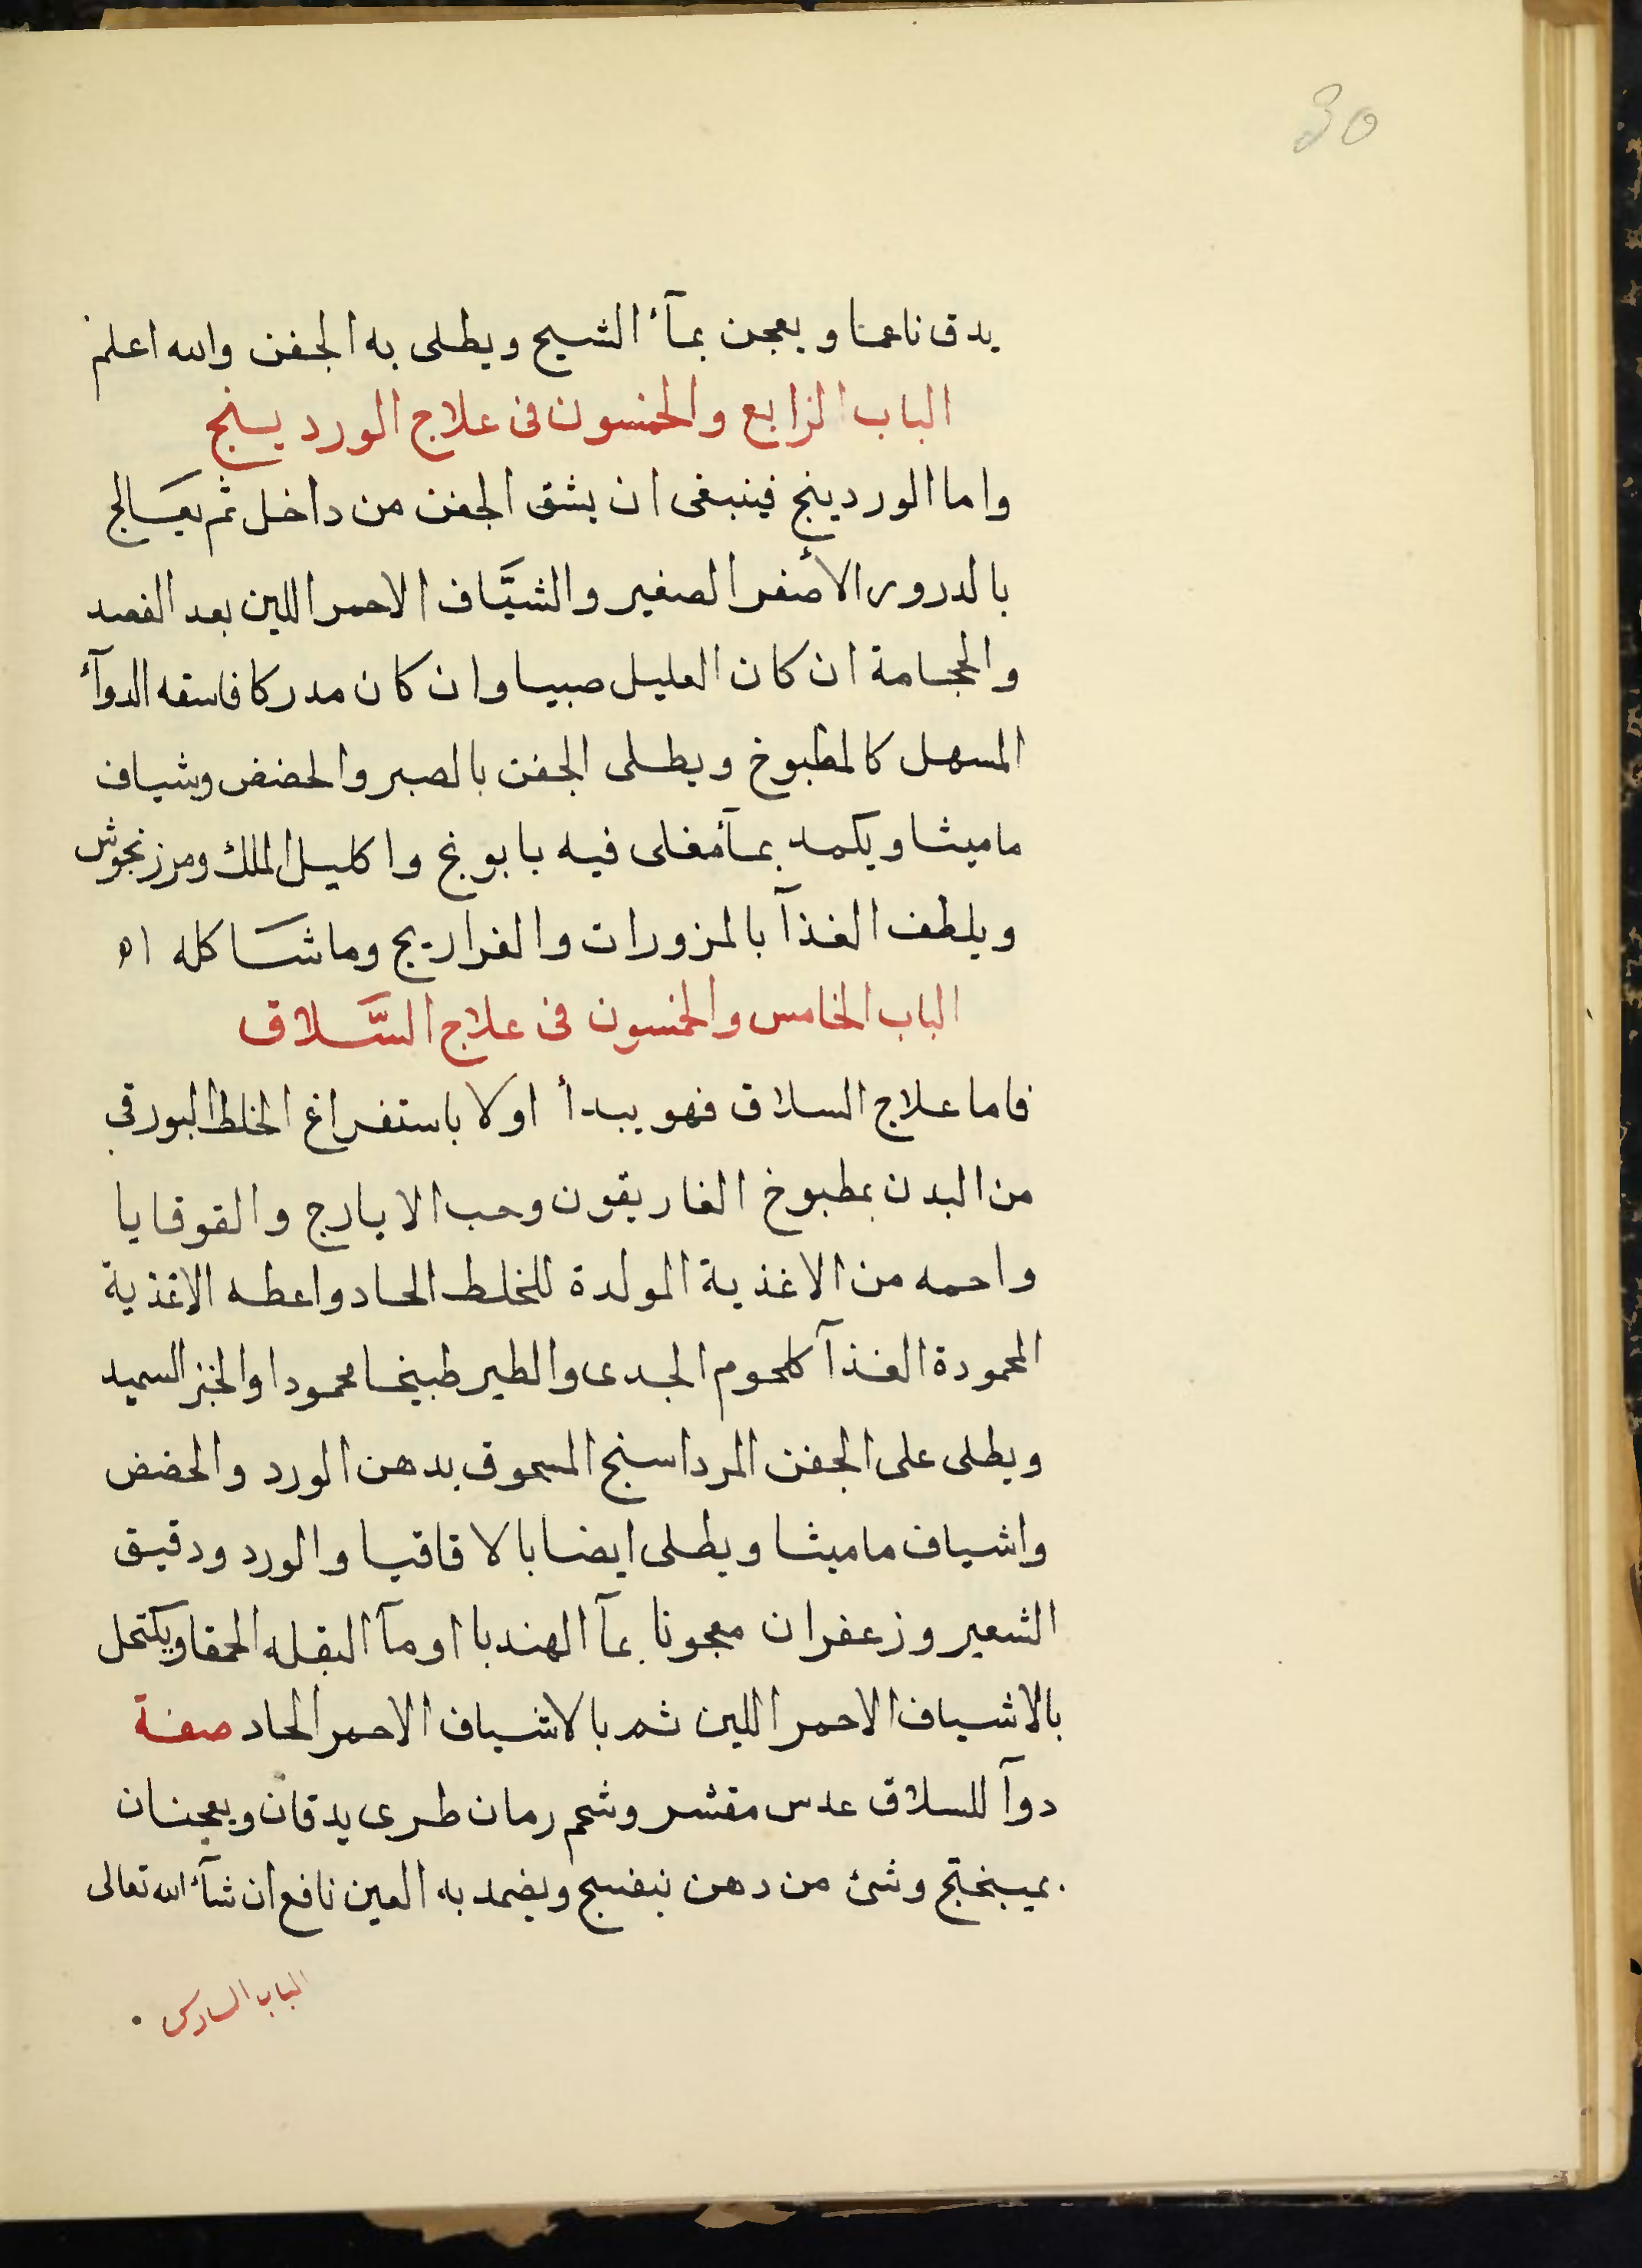 30
يدق ناعما ويعجن بمآء الشيح ويطلى به الجفن والله اعلم
الباب الرابع والخمسون فى علاج الورديسنج
واما الوردينج فينبغى ان يشق الجفن من داخل ثم يعَالج
بالدرور الأصفر الصغير والشيَّاف الاحمر اللين بعد الفصد
والحجامة ان كان العليل صبيا وان كان مدركا فاسقه الدوآء
المسهل كالمطبوخ ويطلى الجفن بالصبر والحضض وشياف
ماميثا ويكمد بمآء مغلى فيه بابونج واكليل الملك ومرزنجوش
ويلطف الغذآ بالمزورات والفراريج وما شَاكله اه
الباب الخامس والخمسون فى علاج السَّلاق
فاما علاج السلاق فهو يبدأ اولا باستفراغ الخلط البورقى
من البدن بمطبوخ الغاريقون وحب الايارج والقوقايا
واحمه من الاغذية المولدة للخلط الحاد واعطه الاغذية
المحمودة الغذآ كلحوم الجدى والطير طبيخا محمودا والخبز السميد
ويطلى على الجفن المرداسنج المسحوق بدهن الورد والحضض
واشياف ماميثا ويطلى ايضا بالاقاقيا والورد ودقيق
الشعير وزعفران معجونا بمآ الهندبا او مآ البقله الحمقا ويكتحل
بالاشياف الاحمر اللين ثم بالاشياف الاحمر الحاد صفة
دوآ للسلاق عدس مقشر وشحم رمان طرى يدقان ويعجنان
بميبختج وشئ من دهن بنفسج ويضمد به العين نافع ان شآء الله تعالى
الباب السادس